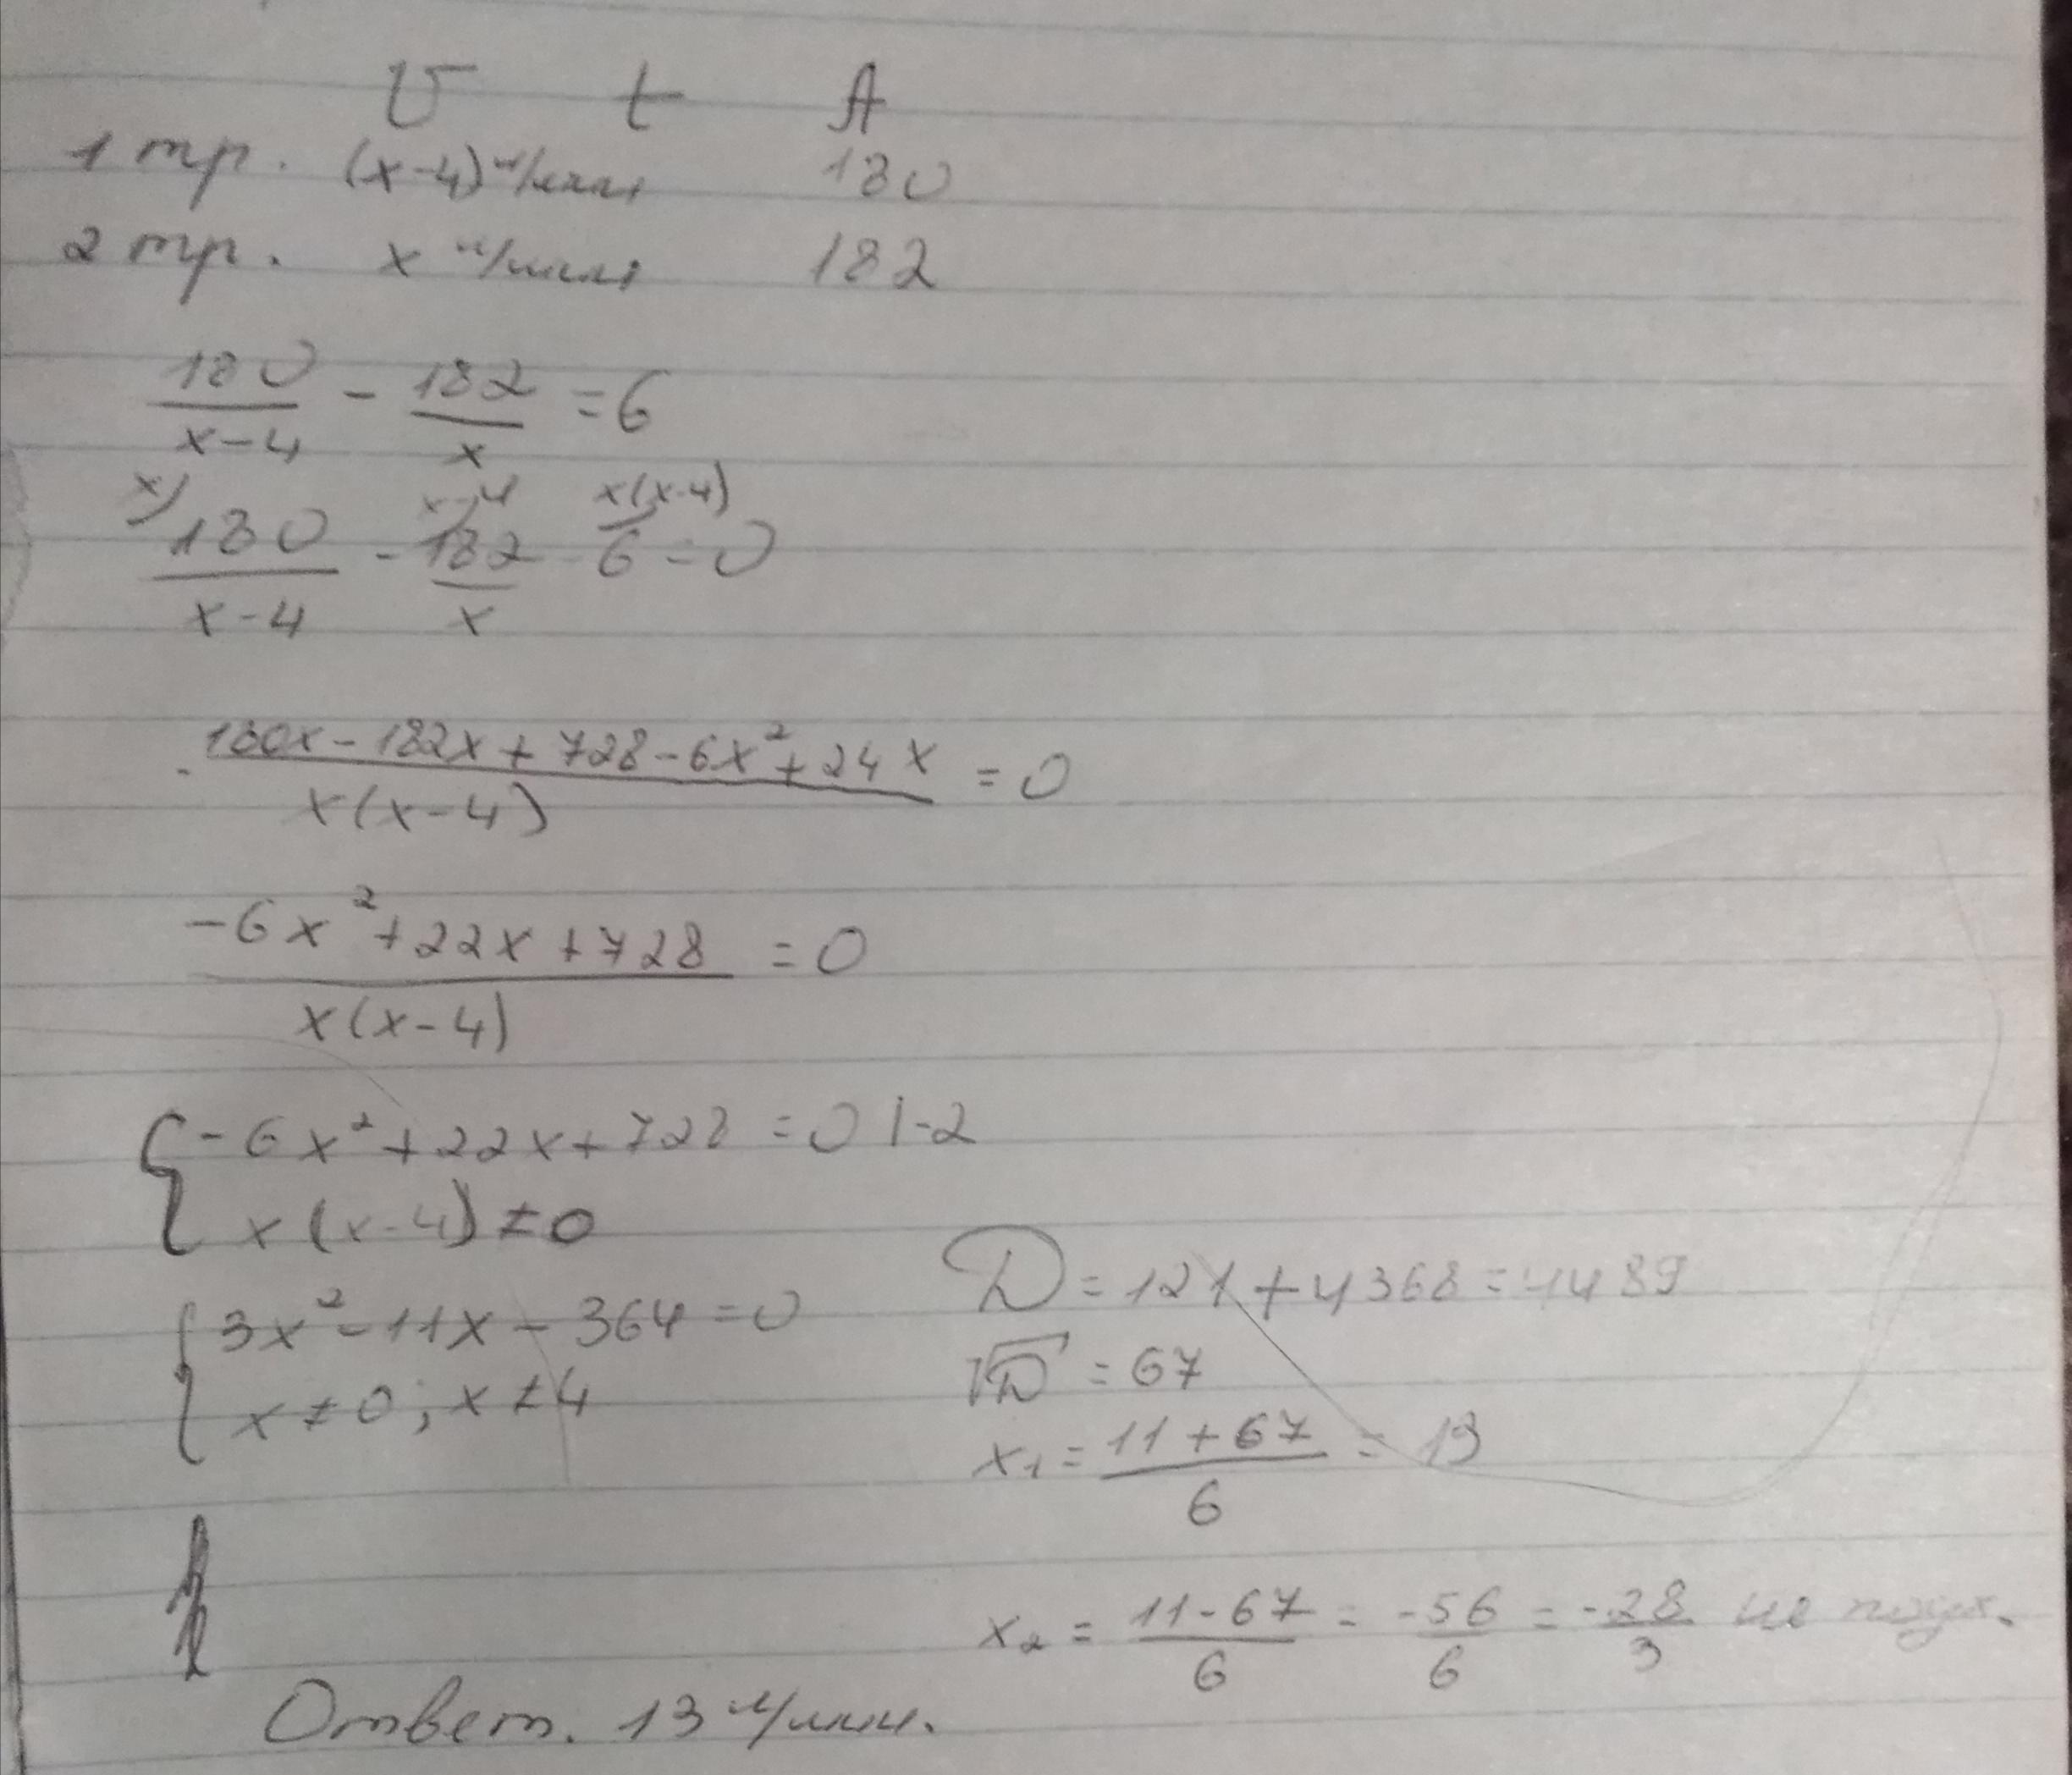 V t A
1 тр. (x-4) л/мин 180
2 тр. x л/мин 182
180/(x-4) - 182/x = 6
x) x-4 x(x-4)
180/(x-4) - 182/x 6 = 0
(180x - 182x + 728 - 6x² + 24x)/(x(x-4)) = 0
(-6x² + 22x + 728)/(x(x-4)) = 0
{ -6x² + 22x + 728 = 0 |-2
x(x-4) ≠ 0
{ 3x² - 11x - 364 = 0
x ≠ 0; x ≠ 4
D = 121 + 4368 = 4489
√D = 67
x₁ = (11 + 67)/6 = 13
x₂ = (11 - 67)/6 = -56/6 = -28/3 не подх.
Ответ. 13 л/мин.